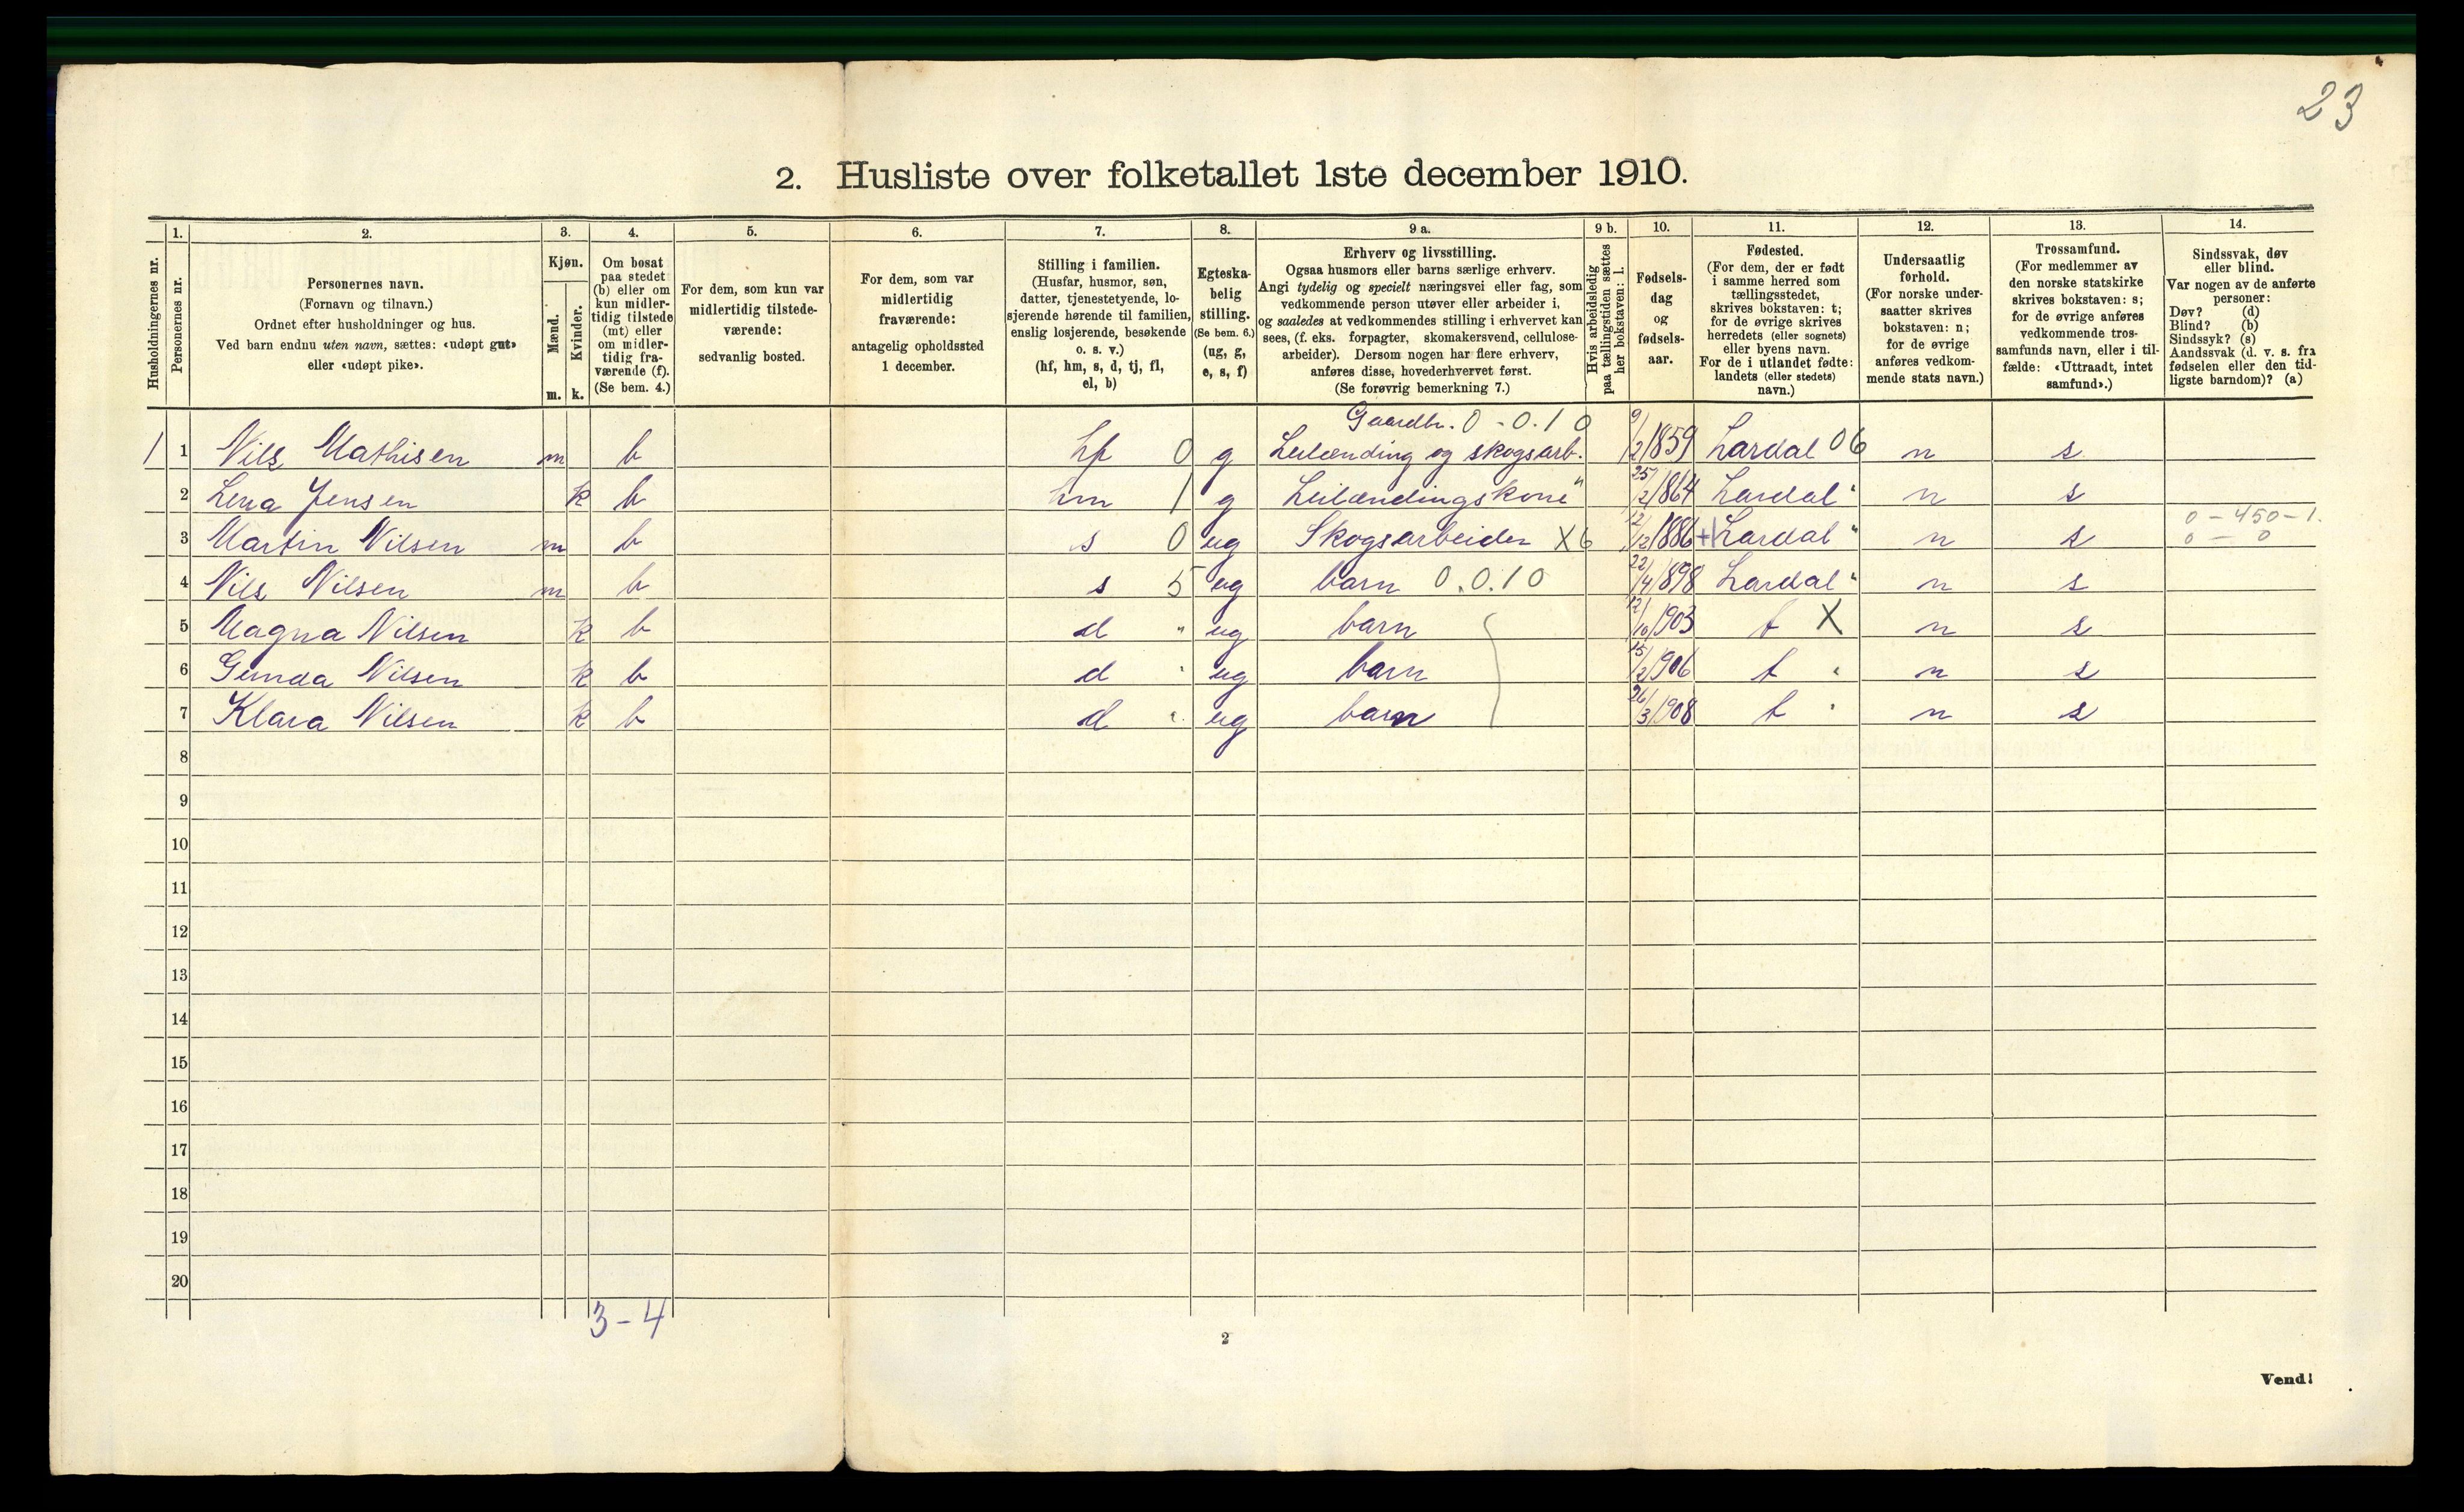 23
2. Husliste over folketallet 1ste december 1910.
Husholdningernes nr.
1.
Personernes nr.
2.
Personernes navn.
(Fornavn og tilnavn.)
Ordnet efter husholdninger og hus.
Ved barn endnu uten navn, sættes: «udøpt gut»
eller «udøpt pike».
3.
Kjøn.
Mænd.
Kvinder.
m. k.
4.
Om bosat
paa stedet
(b) eller om
kun midler-
tidig tilstede
(mt) eller
om midler-
tidig fra-
værende (f).
(Se bem. 4.)
5.
For dem, som kun var
midlertidig tilstede-
værende:
sedvanlig bosted.
6.
For dem, som var
midlertidig
fraværende:
antagelig opholdssted
1 december.
7.
Stilling i familien.
(Husfar, husmor, søn,
datter, tjenestetyende, lo-
sjerende hørende til familien,
enslig losjerende, besøkende
o. s. v.)
(hf, hm, s, d, tj, fl,
el, b)
8.
Egteska-
belig
stilling.
(Se bem. 6.)
(ug, g,
e, s, f)
9 a.
Erhverv og livsstilling.
Ogsaa husmors eller barns særlige erhverv.
Angi tydelig og specielt næringsvei eller fag, som
vedkommende person utøver eller arbeider i,
og saaledes at vedkommendes stilling i erhvervet kan
sees, (f. eks. forpagter, skomakersvend, cellulose-
arbeider). Dersom nogen har flere erhverv,
anføres disse, hovederhvervet først.
(Se forøvrig bemerkning 7.)
9 b.
Hvis arbeidsledig
paa tællingstiden sættes
her bokstaven: l.
10.
Fødsels-
dag
og
fødsels-
aar.
11.
Fødested.
(For dem, der er født
i samme herred som
tællingsstedet,
skrives bokstaven: t;
for de øvrige skrives
herredets (eller sognets)
eller byens navn.
For de i utlandet fødte:
landets (eller stedets)
navn.)
12.
Undersaatlig
forhold.
(For norske under-
saatter skrives
bokstaven: n;
for de øvrige
anføres vedkom-
mende stats navn.)
13.
Trossamfund.
(For medlemmer av
den norske statskirke
skrives bokstaven: s;
for de øvrige anføres
vedkommende tros-
samfunds navn, eller i til-
fælde: «Uttraadt, intet
samfund».)
14.
Sindssvak, døv
eller blind.
Var nogen av de anførte
personer:
Døv? (d)
Blind? (b)
Sindssyk? (s)
Aandssvak (d. v. s. fra
fødselen eller den tid-
ligste barndom)? (a)
Gaardbr. 0 - 0.1 0
1 1 Nils Mathisen m b hf 0 g Leilænding og skogsarb. 9/12 1859 Lardal 06 n s
2 Lena Jensen k b hm 1 g Leilændingskone " 25/12 1864 Lardal " n s
0 - 450 - 1.
3 Martin Nilsen m b s 0 ug Skogsarbeider X6 12/12 1886 + Lardal " n s 0 - 0
4 Nils Nilsen m b s 5 ug barn 0.0.10 22/4 1898 Lardal " n s
5 Magna Nilsen k b d " ug barn 12/10 1903 t X n s
6 Gunda Nilsen k b d " ug barn 15/2 1906 t " n s
7 Klara Nilsen k b d " ug barn 26/3 1908 t " n s
8
9
10
11
12
13
14
15
16
17
18
19
20
3 - 4
2
Vend!